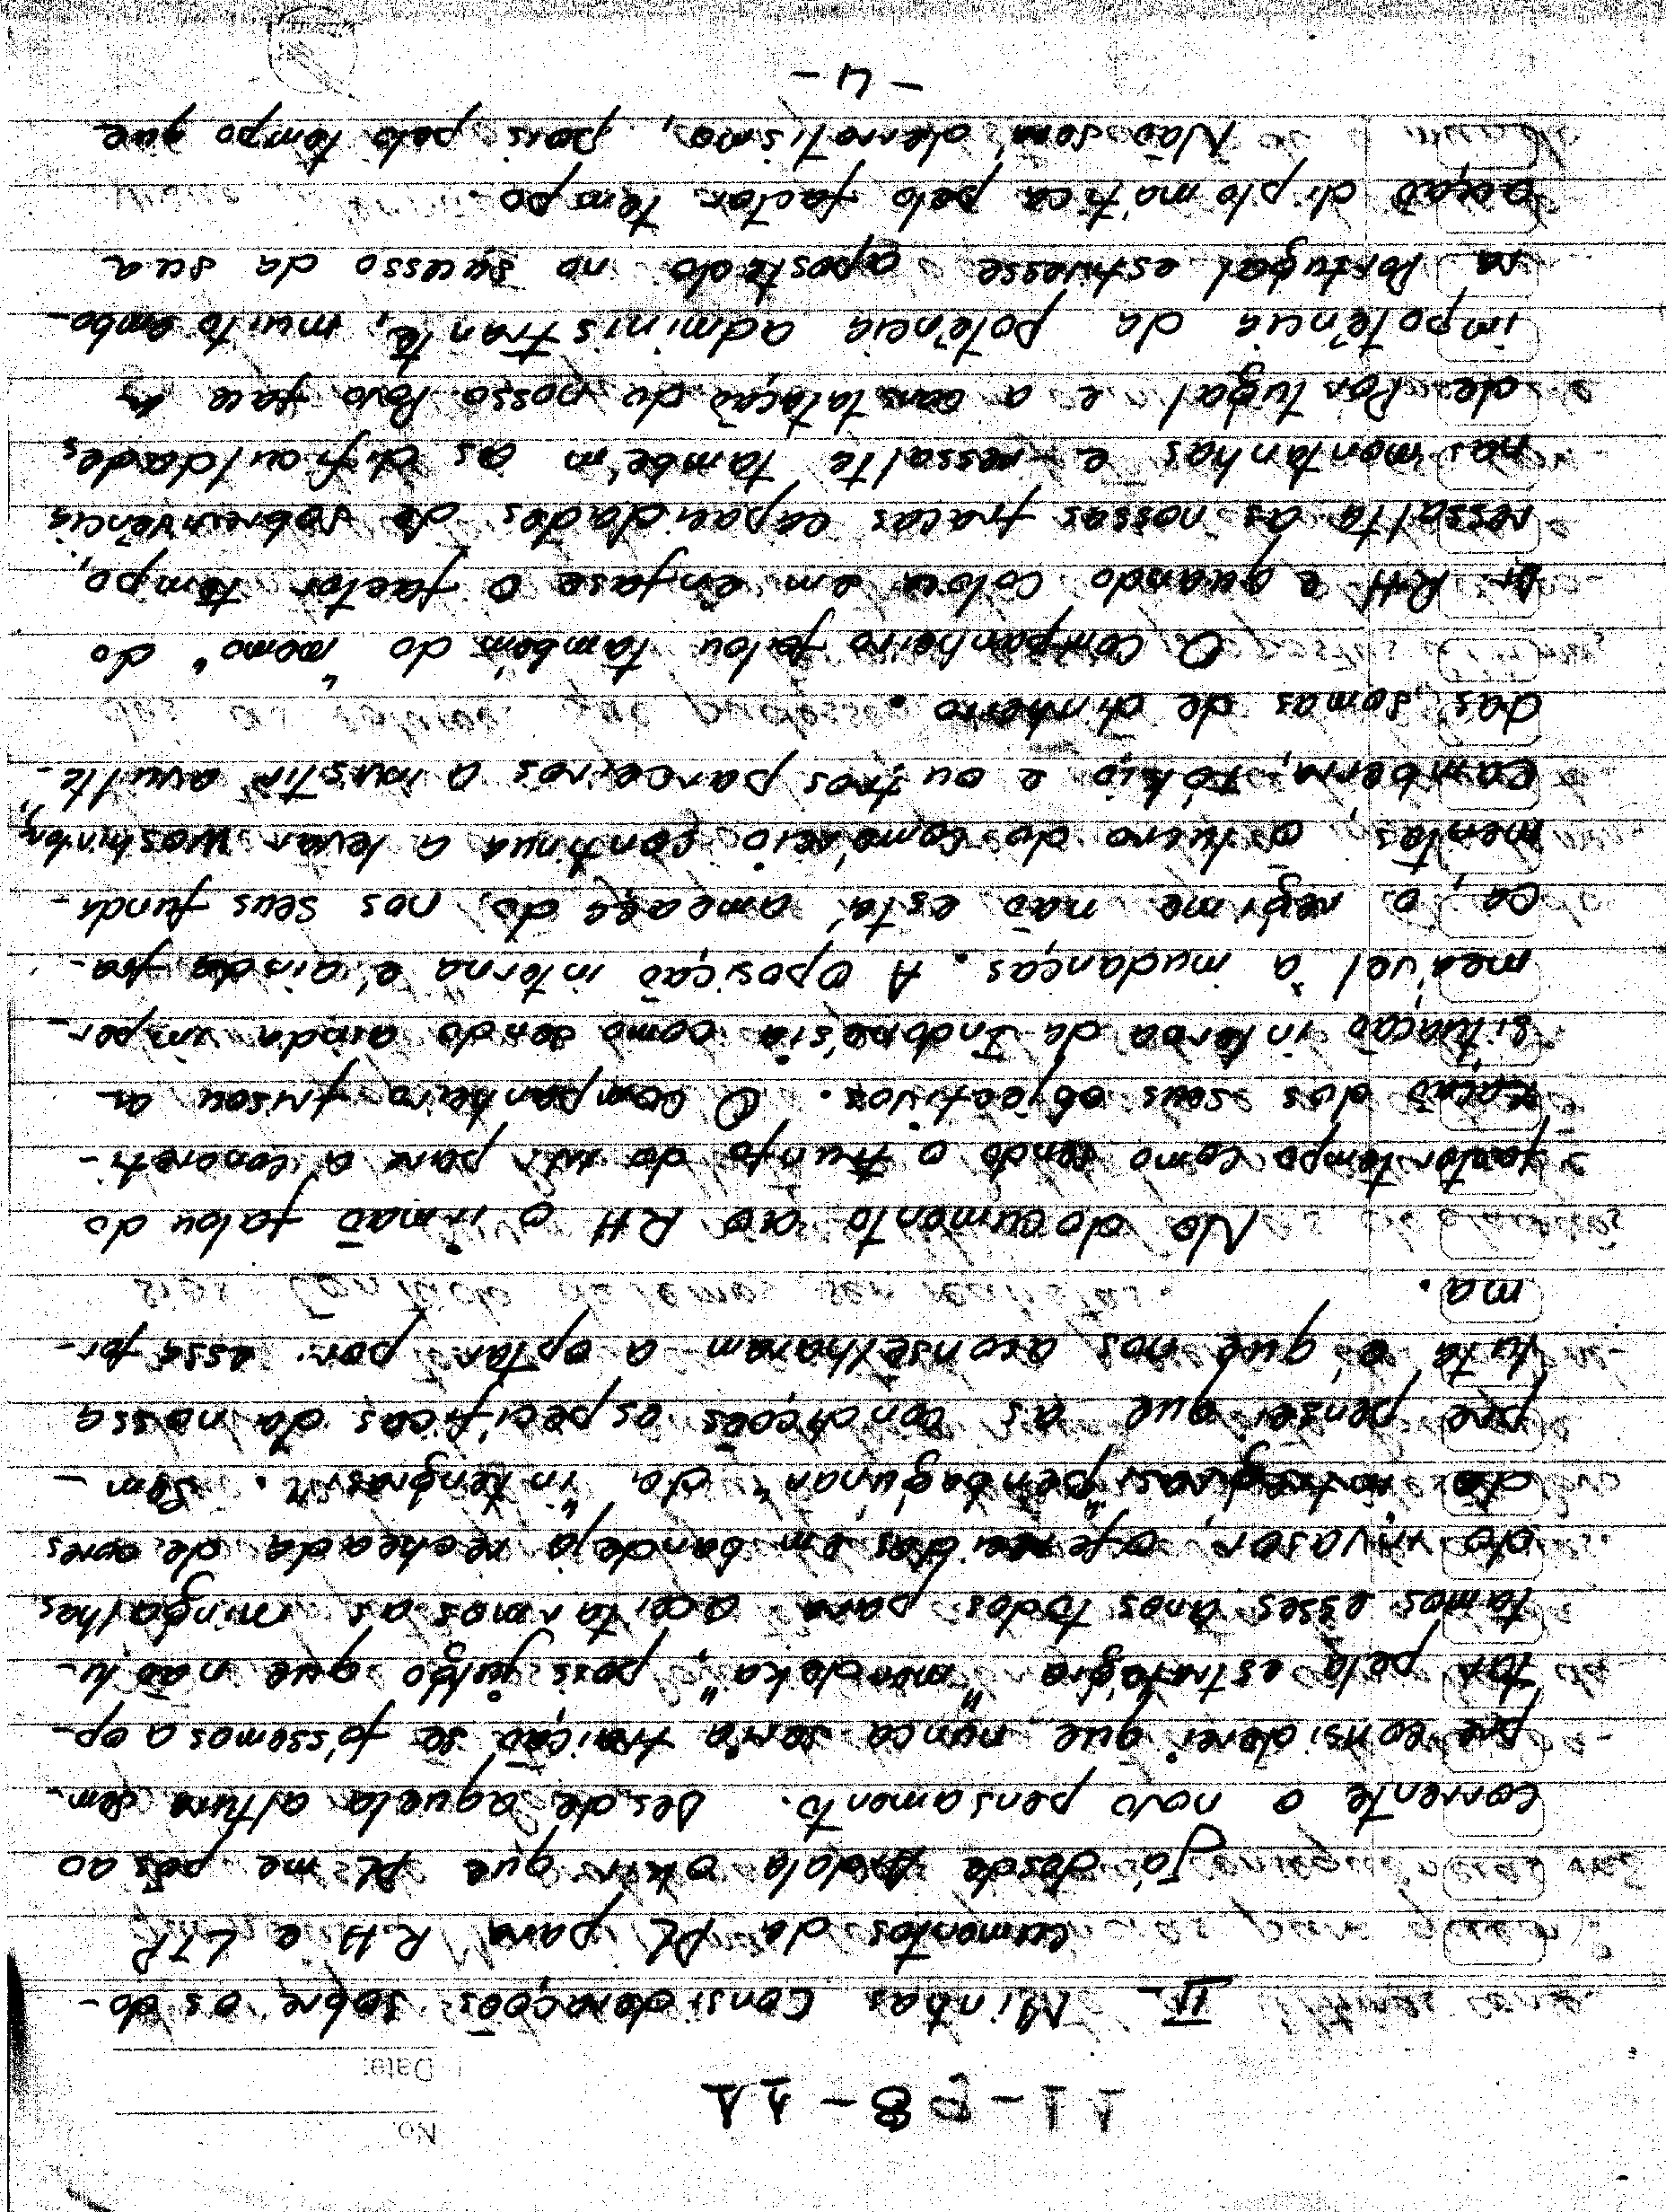 No.
Date:
II- Minhas considerações sobre os do-
cumentos da PL para RH e LTR
Já desde Aidola Okir que PL me pôs ao
corrente o novo pensamento. Desde aquela altura sem-
pre considerei que nunca seria traição se fôssemos a op-
tar pela estratégia "merdeka", pois julgo que não lu-
tamos esses anos todos para aceitarmos as mingalhas
do invasor, oferecidas em bandeja recheada de cores
da "pembagunan" da "integrasi". Sem-
pre pensei que as condições específicas da nossa
luta é que nos aconselharam a optar por essa for-
ma.
No documento ao RH o irmão falou do
factor tempo como sendo o trunfo do para a concreti-
zação dos seus objectivos. O companheiro frisou a
situação interna da Indonésia como sendo ainda imper-
meável à mudanças. A oposição interna é ainda fra-
ca, o regime não está ameaçado, nos seus funda-
mentos, o lucro do comércio continua a levar Washington,
Camberra, Tókio e outros parceiros a investir avulta-
das somas de dinheiro.
O companheiro falou também do "memo" do
Sr. RH e quando coloca em ênfase o factor tempo,
ressalta as nossas fracas capacidades de sobrevivência
nas montanhas e ressalte também as dificuldades
de Portugal e a constatação do nosso Povo face
impotência da potência administrante, muito embo-
ra Portugal estivesse apostado no sucesso da sua
acção diplomática pelo factor tempo.
Não sou derrotismo, pois pelo tempo que